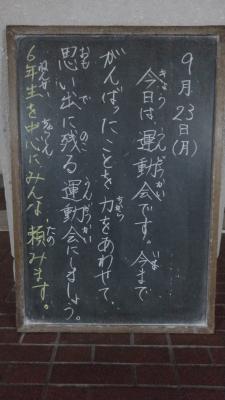 9月23日(月)
きょう うんどうかい いま
今日は、運動会です。今まで
ちから
がんばったことを力をあわせて、
おも で のこ うんどうかい
思い出に残る運動会にしましょう。
ねんせい ちゅうしん たの
6年生を中心にみんな、頼みます。